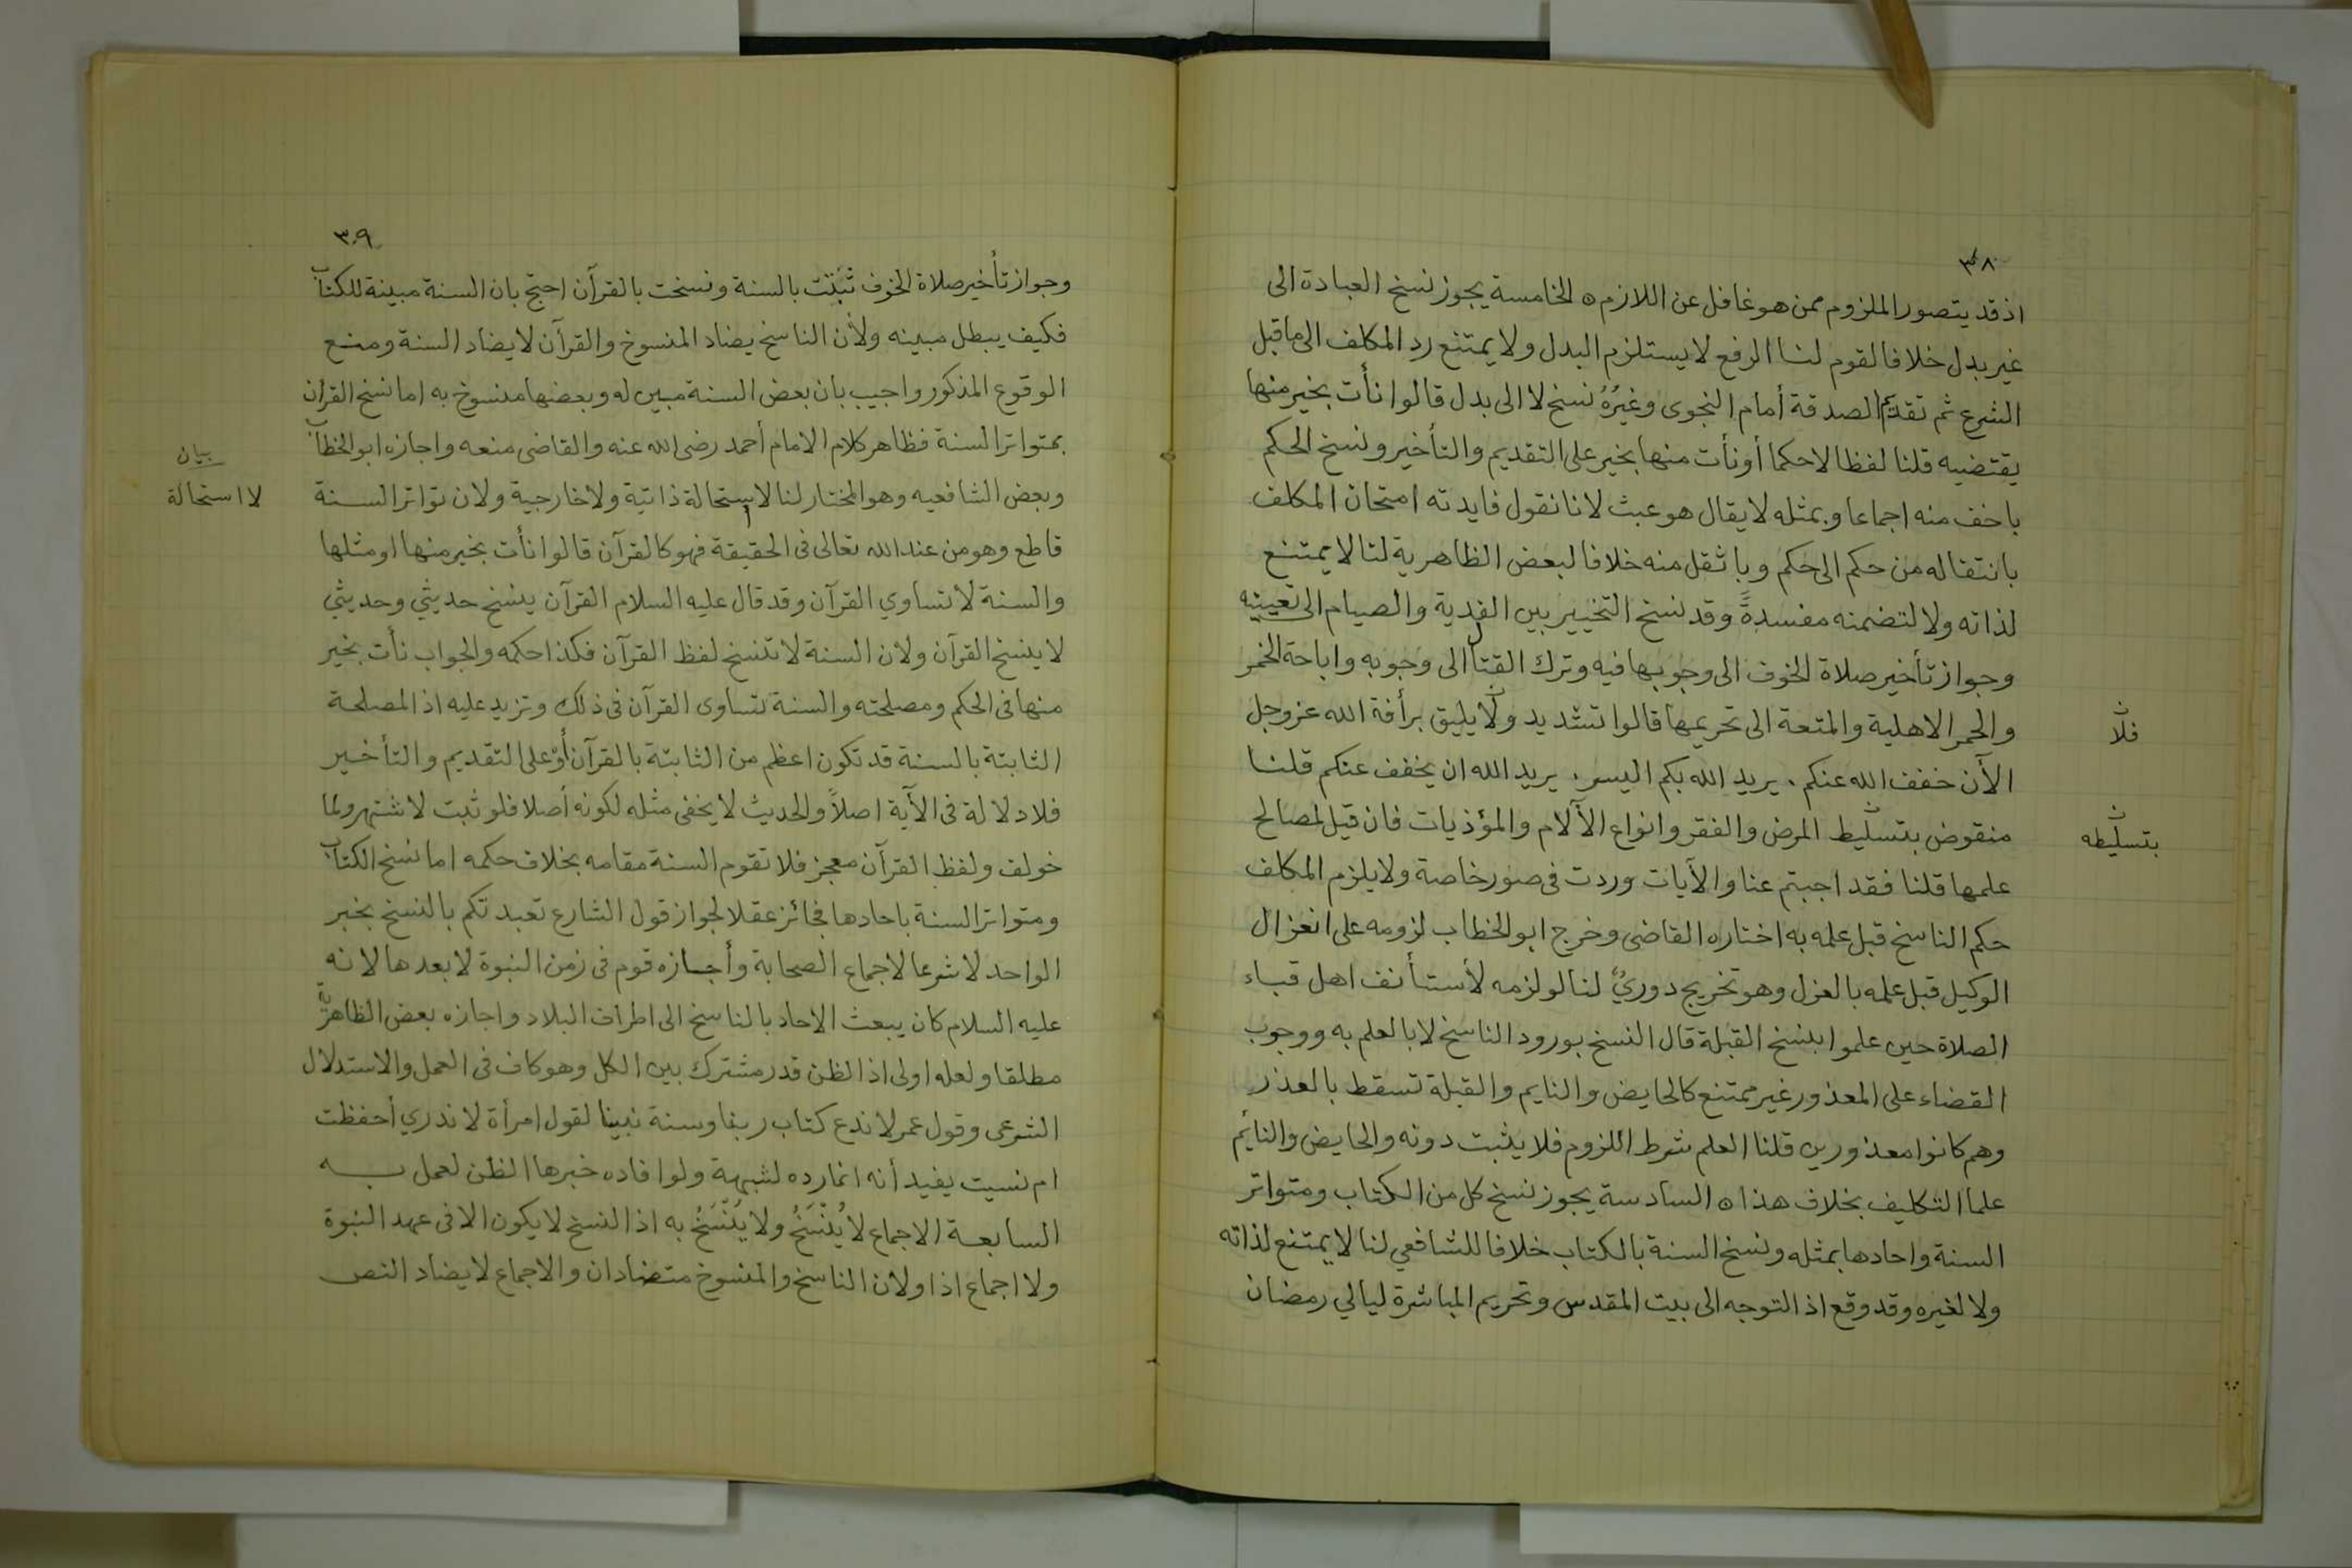 ٣٠٨
اذ قد يتصور الملزوم ممن هو غافل عن اللازم ه الخامسة يجوز نسخ العبادة الى
غير بدل خلافا لقوم لنا الرفع لا يستلزم البدل ولا يمتنع رد المكلف الى ما قبل
الشرع ثم تقديم الصدقة أمام النجوى وغيرُهُ نسخ لا الى بدل قالوا نأت بخير منها
يقتضيه قلنا لفظا لا حكما أو نأت منها بخير على التقديم والتأخير ونسخ الحكم
باخف منه اجماعا وبمثله لا يقال هو عبث لانا نقول فايدته امتحان المكلف
بانتقاله من حكم الى حكم وباثقل منه خلافا لبعض الظاهرية لنا لا يمتنع
لذاته ولا لتضمنه مفسدةً وقد نسخ التخيير بين الفدية والصيام الى تعيينه
وجواز تأخير صلاة الخوف الى وجوبها فيه وترك القتال الى وجوبه واباحة الخمر
والحمر الاهلية والمتعة الى تحريمها قالوا تشديد ولا يليق برأفة الله عز وجل
فلا ن
الآن خفف الله عنكم . يريد الله بكم اليسر . يريد الله ان يخفف عنكم قلنا
منقوض بتسليط المرض والفقر وانواع الآلام والمؤذيات فان قيل لمصالح
بتسليطه ن
علمها قلنا فقد اجبتم عنا والآيات وردت فى صور خاصة ولا يلزم المكلف
حكم الناسخ قبل علمه به اختاره القاضى وخرج ابو الخطاب لزومه على انعزال
الوكيل قبل علمه بالعزل وهو تخريج دوريٌ لنا لو لزمه لأستأنف اهل قباء
الصلاة حين علموا بنسخ القبلة قال النسخ بورود الناسخ لا بالعلم به ووجوب
القضاء على المعذور غير ممتنع كالحايض والنايم والقبلة تسقط بالعذر
وهم كانوا معذورين قلنا العلم شرط اللزوم فلا يثبت دونه والحايض والنايم
علما التكليف بخلاف هذا ه السادسة يجوز نسخ كل من الكتاب ومتواتر
السنة واحادها بمثله ونسخ السنة بالكتاب خلافا للشافعي لنا لا يمتنع لذاته
ولا لغيره وقد وقع اذ التوجه الى بيت المقدس وتحريم المباشرة ليالي رمضان
٣٠٩
وجواز تأخير صلاة الخوف ثبتت بالسنة ونسخت بالقرآن احتج بان السنة مبينة للكتاب
فكيف يبطل مبينه ولأن الناسخ يضاد المنسوخ والقرآن لا يضاد السنة ومنع
الوقوع المذكور واجيب بان بعض السنة مبين له وبعضها منسوخ به اما نسخ القران
بمتواتر السنة فظاهر كلام الامام أحمد رضى الله عنه والقاضى منعه واجازه ابو الخطاب
وبعض الشافعيه وهو المختار لنا لا استحالة ذاتية ولا خارجية ولان تواتر السنة
بيان
لا استحالة
قاطع وهو من عند الله تعالى فى الحقيقة فهو كالقرآن قالوا نأت بخير منها او مثلها
والسنة لا تساوي القرآن وقد قال عليه السلام القرآن ينسخ حديثي وحديثي
لا ينسخ القرآن ولان السنة لا تنسخ لفظ القرآن فكذا حكمه والجواب نأت بخير
منها فى الحكم ومصلحته والسنة تساوى القرآن فى ذلك وتزيد عليه اذ المصلحة
الثابتة بالسنة قد تكون اعظم من الثابتة بالقرآن أوْ على التقديم والتأخير
فلا دلالة فى الآية اصلاً والحديث لا يخفى مثله لكونه أصلا فلو ثبت لاشتهر ولما
خولف ولفظ القرآن معجز فلا تقوم السنة مقامه بخلاف حكمه اما نسخ الكتاب
ومتواتر السنة باحادها فجائز عقلا لجواز قول الشارع تعبدتكم بالنسخ بخبر
الواحد لا شرعا لاجماع الصحابة وأجازه قوم فى زمن النبوة لا بعدها لانه
عليه السلام كان يبعث الاحاد بالناسخ الى اطراف البلاد واجازه بعض الظاهرية
مطلقا ولعله اولى اذ الظن قدر مشترك بين الكل وهو كاف فى العمل والاستدلال
الشرعى وقول عمر لا ندع كتاب ربنا وسنة نبينا لقول امرأة لا ندري أحفظت
ام نسيت يفيد أنه انما رده لشبهة ولو افاده خبرها الظن لعمل به
السابعة الاجماع لا يُنْسَخُ ولا يُنْسَخُ به اذ النسخ لا يكون الا فى عهد النبوة
ولا اجماع اذا ولان الناسخ والمنسوخ متضادان والاجماع لا يضاد النص